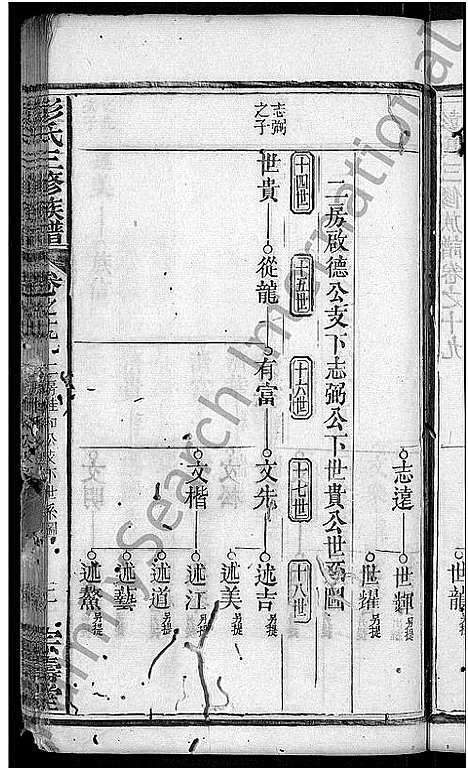 世龍
志遠 世輝 另提
世耀 另提
二房啟德公支下志弼公下世貴公世系圖
十四世 十五世 十六世 十七世 十八世
志弼之子
世貴 從龍 有富 文先 述吉 另提
述美 另提
文楷 述江 另提
述道 另提
述藝 另提
述鰲 另提
彭氏三修族譜 卷之十九
彭氏三修族譜卷之十九
FamilySearch International